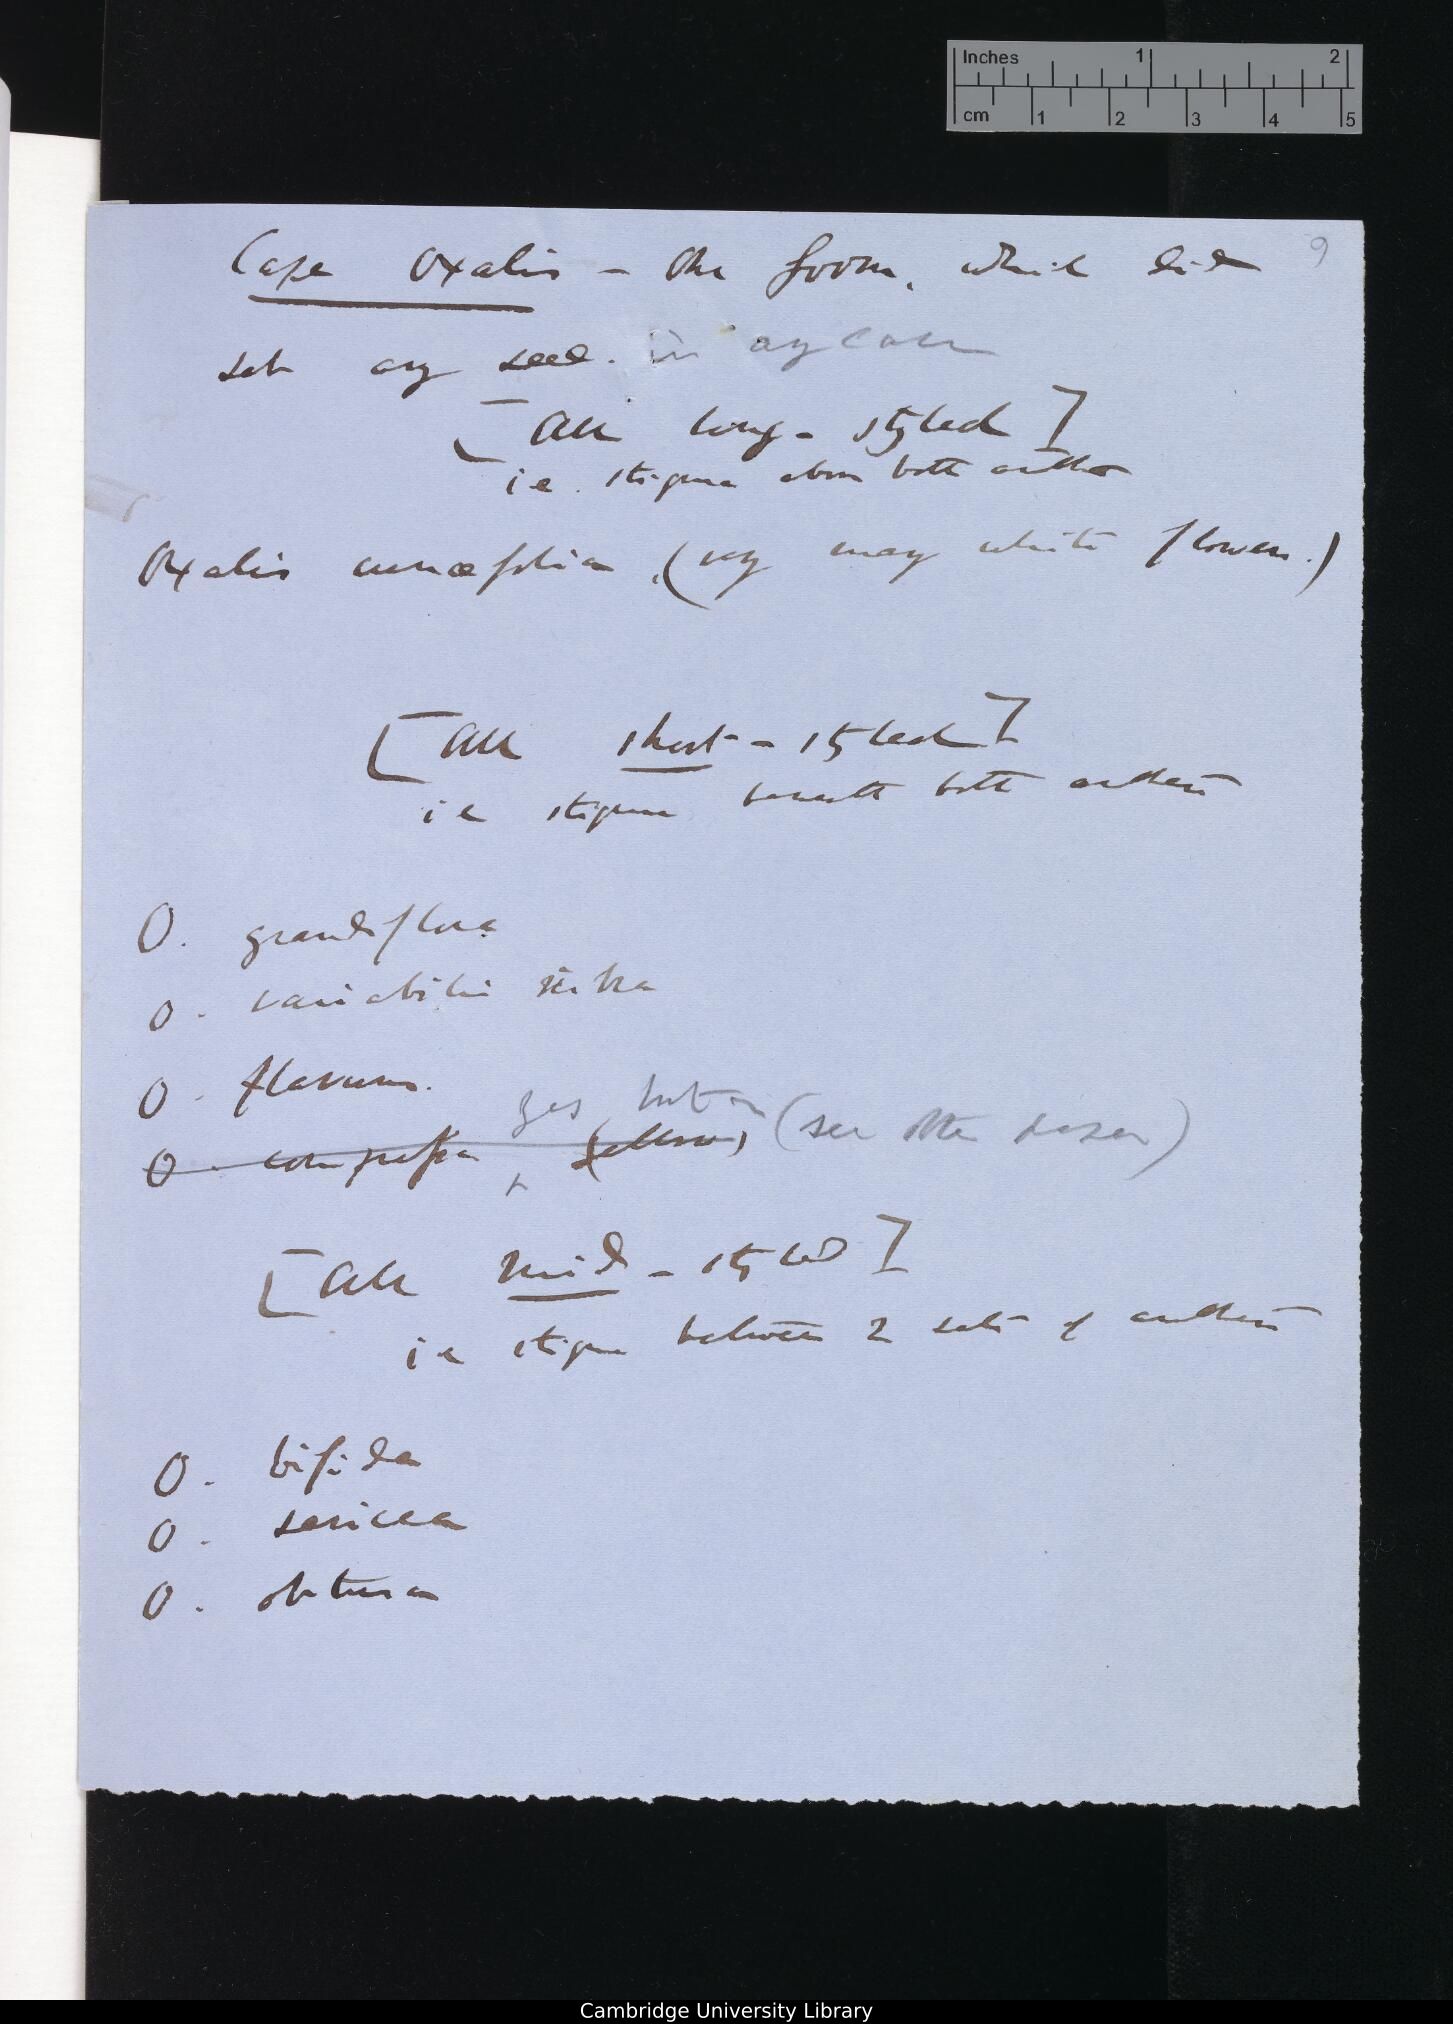 Inches 1 2
cm 1 2 3 4 5
9
Cape Oxalis — One form, which did
set any seed. in any case
[All long-styled]
i.e. stigma above both anthers
Oxalis cuneæfolia, (very many white flowers.)
[All short-styled]
i.e stigma beneath both anthers
O. grandiflora
O. variabilis rubra
O. flavum.
yes but
O. compressa (yellow) (see other paper)
[All mid-styled]
i.e stigma between 2 sets of anthers
O. bifida
O. sericea
O. obtusa
Cambridge University Library